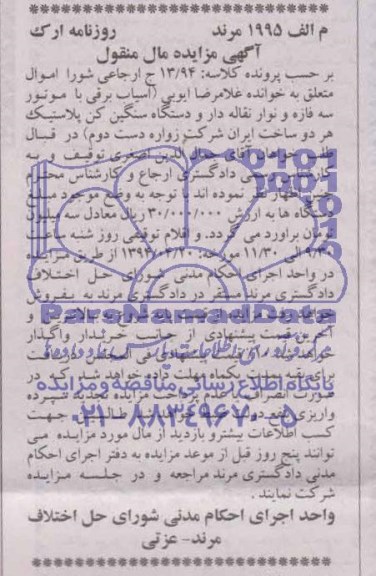 م الف ۱۹۹۵ مرند روزنامه ارک
آگهی مزایده مال منقول
بر حسب پرونده کلاسه: ۱۳/۹۴ ج ارجاعی شورا اموال
متعلق به خوانده غلامرضا ایوبی (آسیاب برقی با موتور
سه فازه و نوار نقاله دار و دستگاه سنگین کن پلاستیک
هر دو ساخت ایران شرکت زواره دست دوم) در قبال
طلب خواهان آقای جلال الدین اصغری توقیف و به
کارشناس رسمی دادگستری ارجاع و کارشناس محترم
اظهار نظر نموده اند با توجه به وضع موجود مبلغ
دستگاه ها به ارزش ۳۰/۰۰۰/۰۰۰ ریال معادل سه میلیون
تومان براورد می گردد. و اقلام توقیفی روز شنبه ساعت
۹/۳۰ الی ۱۱/۳۰ مورخه: ۱۳۹۴/۰۴/۲۰ از طریق مزایده
در واحد اجرای احکام مدنی شورای حل اختلاف
دادگستری مرند مستقر در دادگستری مرند به بفروش
و
آخرین قیمت پیشنهادی از جانب خریدار واگذار
خواهد شد. قیمت پیشنهادی فی المجلس
برای بقیه یکماه مهلت داده خواهد شد که در
صورت انصراف یا عدم پرداخت مزایده تجدید سپرده
واریزی جهت
کسب اطلاعات بیشتر و بازدید از مال مورد مزایده می
توانند پنج روز قبل از موعد مزایده به دفتر اجرای احکام
مدنی دادگستری مرند مراجعه و در جلسه مزایده
شرکت نمایند.
واحد اجرای احکام مدنی شورای حل اختلاف
مرند- عزتی
ParsNamadData
پایگاه اطلاع رسانی مناقصه و مزایده
۰۲۱-۸۸۳۴۹۶۷۰-۵